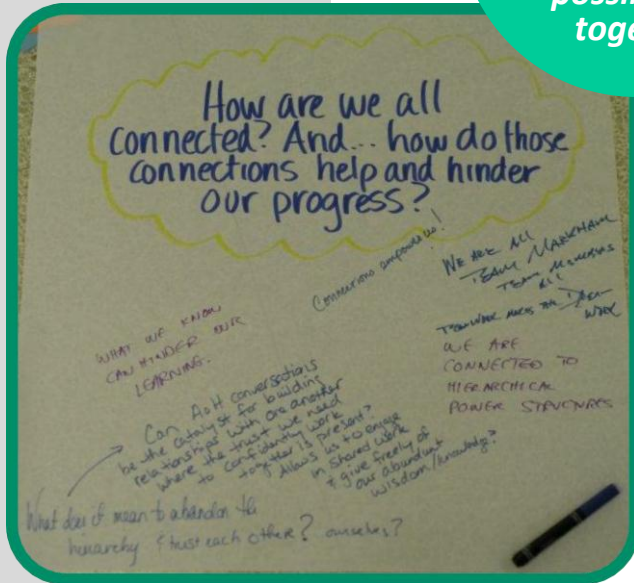 possi
toge
How are we all
connected? And... how do those
connections help and hinder
our progress?
Connections empower us!
WE ARE ALL
TEAM MARKHAM
TEAM MEMBERS
ALL
TEAMWORK MAKES THE DREAM
WORK
WE ARE
CONNECTED TO
HIERARCHICAL
POWER STRUCTURES
WHAT WE KNOW
CAN HINDER OUR
LEARNING.
Can AoH conversations
be the catalyst for building
relationships with one another
where the trust we need
to confidently work
together is present?
Allows us to engage
in shared work
& give freely of
our abundant
wisdom/knowledge?
What does it mean to abandon the
hierarchy & trust each other? ourselves?